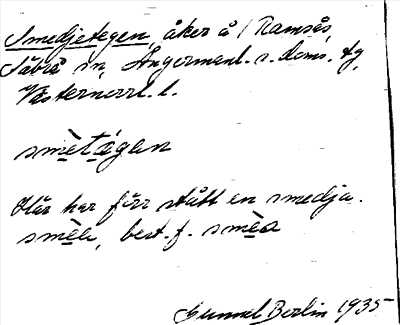 Smedjetegen, åker å Ramsås,
Säbrå sn, Ångermanl. s. doms. tg,
Västernorrl. l.
smètǻgen
Här har förr stått en smedja.
smèa, best. f. smèa
Gunnel Berlin 1935